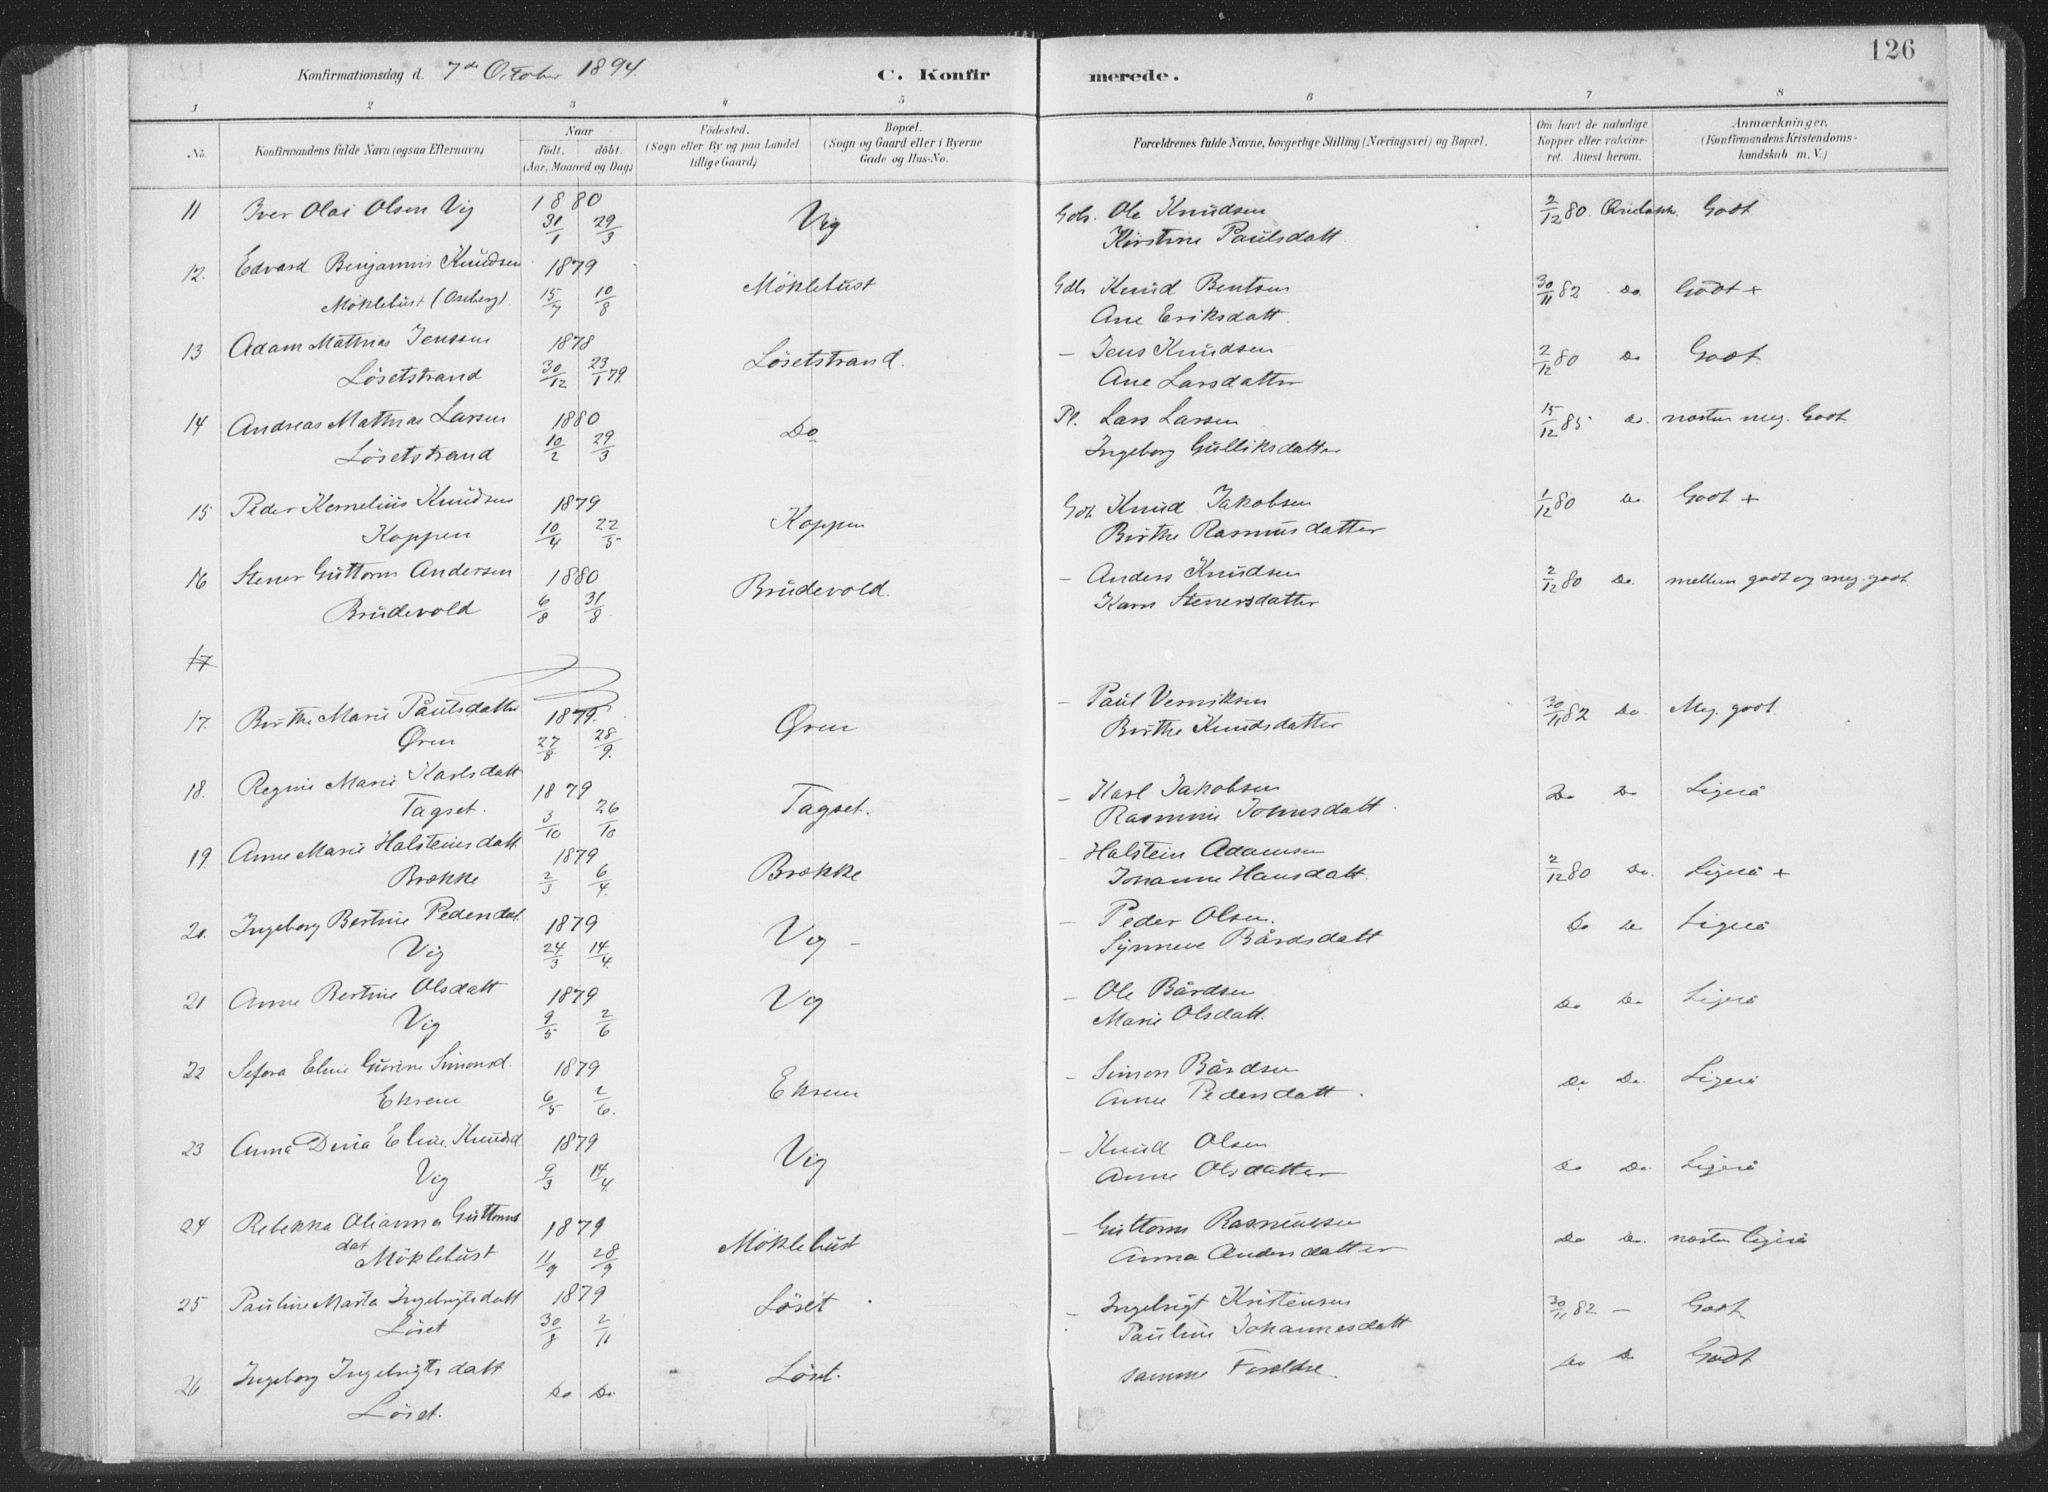 126
Konfirmationsdag d. 7de October 1894. C. Konfirmerede.
1 2 3 4 5 6 7 8
No. Konfirmandens fulde Navn (ogsaa Efternavn) Naar født. døbt. (Aar, Maaned og Dag) Fødested. (Sogn eller By og paa Landet tillige Gaard) Bopæl. (Sogn og Gaard eller i Byerne Gade og Hus-No. Forældrenes fulde Navne, borgerlige Stilling (Næringsvei) og Bopæl. Om havt de naturlige Kopper eller vakcineret. Attest herom. Anmærkninger, (Konfirmandens Kristendomskundskab m. V.)
11 Iver Olai Olsen Vig 1880 Vig Gdb. Ole Knudsen 2/12 80. Godt
31/1 29/3 Kirstine Paulsdatt.
12. Edvard Benjamin Knudsen 1879 Möklebust Gdb Knud Bentsen 30/11 82 Do Godt +
Möklebust (Oseberg). 15/7 10/8 Ane Eriksdatt.
13 Adam Mathias Jenssen 1878 Lösetstrand. – Jens Knudsen 2/12 80 Do Godt.
Lösetstrand 30/12 23/1 79. Ane Larsdatter
14 Andreas Mathias Larsen 1880 Do Pl. Lars Larsen 15/12 85 do. næsten meg. Godt
Lösetstrand 10/2 29/3 Ingeborg Gulliksdatter
15 Peder Kornelius Knudsen 1879 Koppen Gdb Knud Jakobsen 1/12 80 Do Godt +
Koppen 10/4 22/5 Birthe Rasmusdatter
16 Stener Guttorm Andersen 1880 Brudevold. – Anders Knudsen 2/12 80 Do. mellem godt og meg. godt
Brudevold 6/8 31/8 Karn Stenersdatter
17
17. Birthe Marie Paulsdatter 1879. Øren – Paul Verniksen 30/11 82 Do Meg. godt
Øren 27/8 28/9. Birthe Knudsdatter
18. Regine Marie Karlsdatt 1879 Tagset. – Karl Jakobsen Do Do Ligeså
Tagset. 3/10 26/10 Rasmine Johnsdatt.
19. Anne Marie Halsteinsdatt. 1879 Brække – Halstein Adamsen 2/12 80 Do. Ligeså +
Brække 2/3 6/4. Johanne Hansdatt.
20. Ingeborg Bertine Pedersdat. 1879 Vig – – Peder Olsen. Do Do Ligeså
Vig 24/3 14/4. Synneve Bårdsdatt
21 Anne Bertine Olsdatt 1879 Vig – Ole Bårdsen Do Do Ligeså
Vig 9/5 2/6 Marie Olsdatt.
22 Sefora Eline Gurine Simonsd. 1879 Ekrem – Simon Bårdsen Do Do. Ligeså
Ekrem 6/5 2/6. Anne Pedersdatt.
23 Anna Dina Eline Knudsd. 1879 Vig – Knud Olsen Do Do. Ligeså
Vig 9/3 14/4. Anne Olsdatter
24 Rebekka Olianna Guttorms 1879 Möklebust – Guttorm Rasmussen Do Do. næsten ligeså
dat Möklebust 11/9 28/9 Anna Andersdatter
25 Pauline Marta Ingebrigtsdatt 1879 Löset – Ingebrigt Kristensen 30/11 82 – Godt
Löset 30/8 2/11 Pauline Johannesdatt
26 Ingeborg Ingebrigtsdatt Do Do. Löset. samme Foreldre Do Do Godt
Löset.